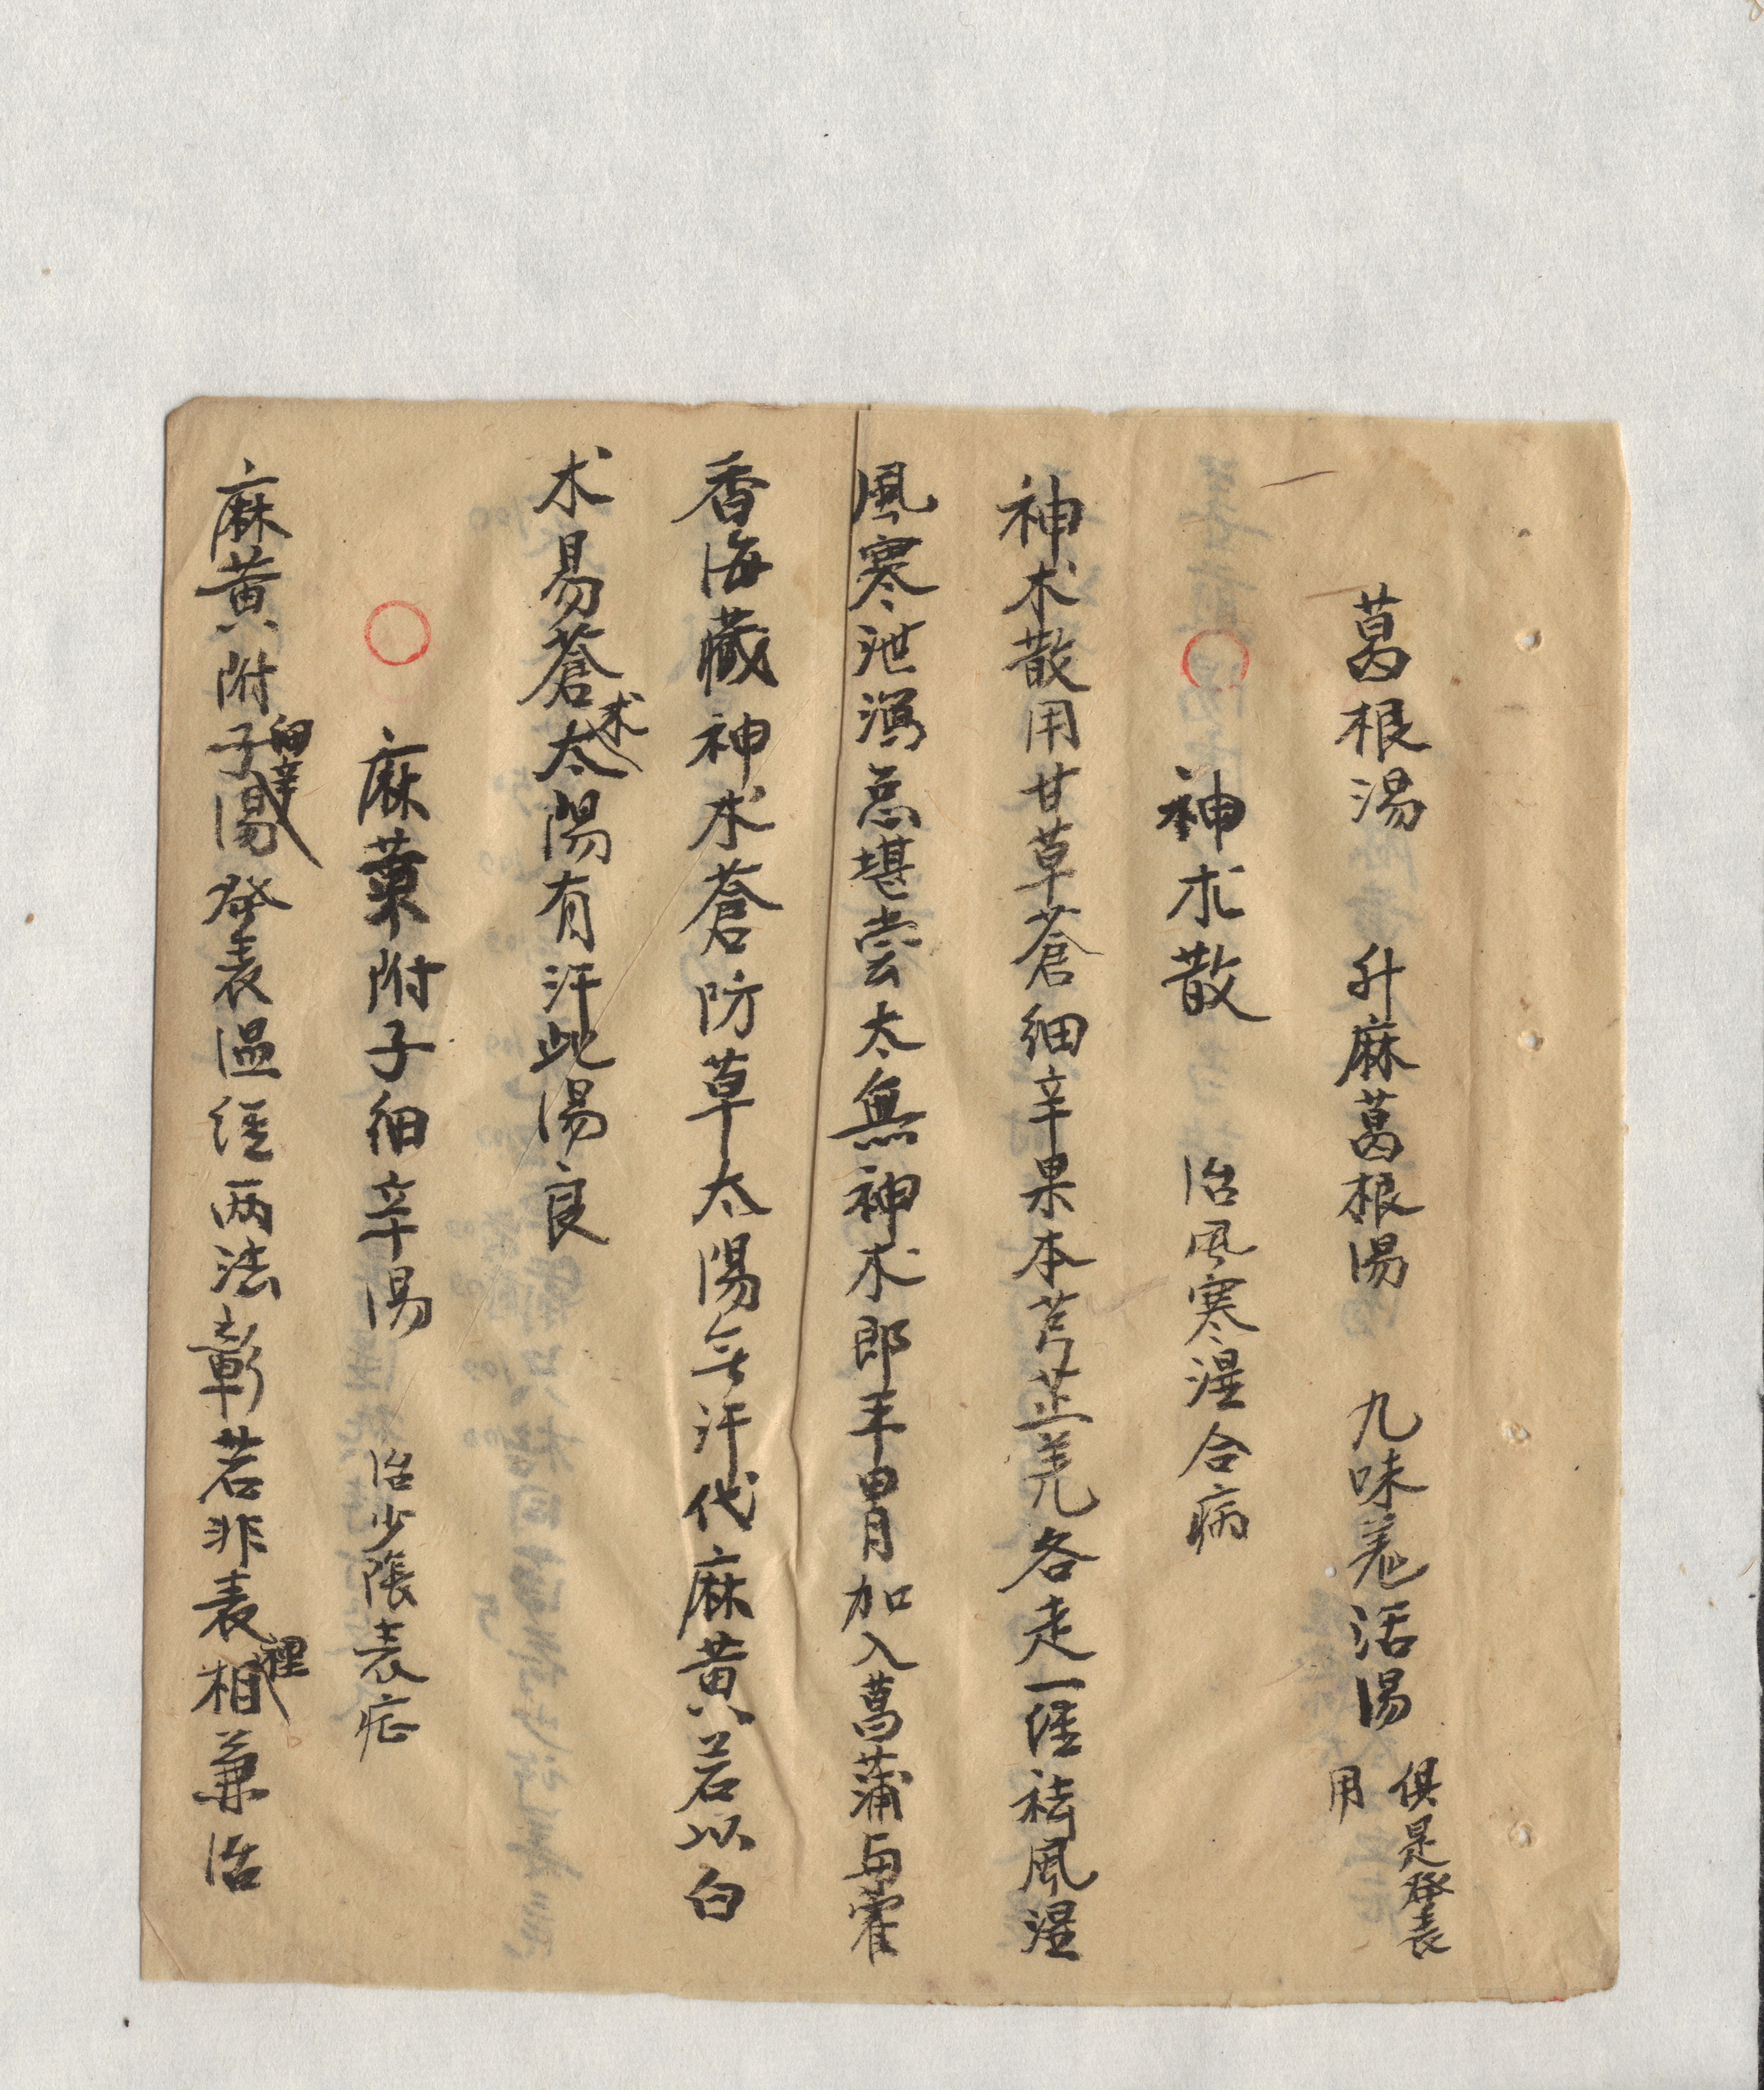 葛根湯　升麻葛根湯　九味羌活湯　俱是發表用
神朮散　治風寒湿合病
神朮散用甘草蒼細辛果本芎芷羌各走一経祛風湿
風寒泄瀉惣堪嘗太無神朮即平胃加入菖蒲与霍
香海藏神朮蒼防草太陽無汗代麻黄若以白
朮易蒼朮太陽有汗此湯良
麻黄附子細辛湯　治少陰表症
麻黄附子細辛湯發表温経两法彰若非表裡相兼治